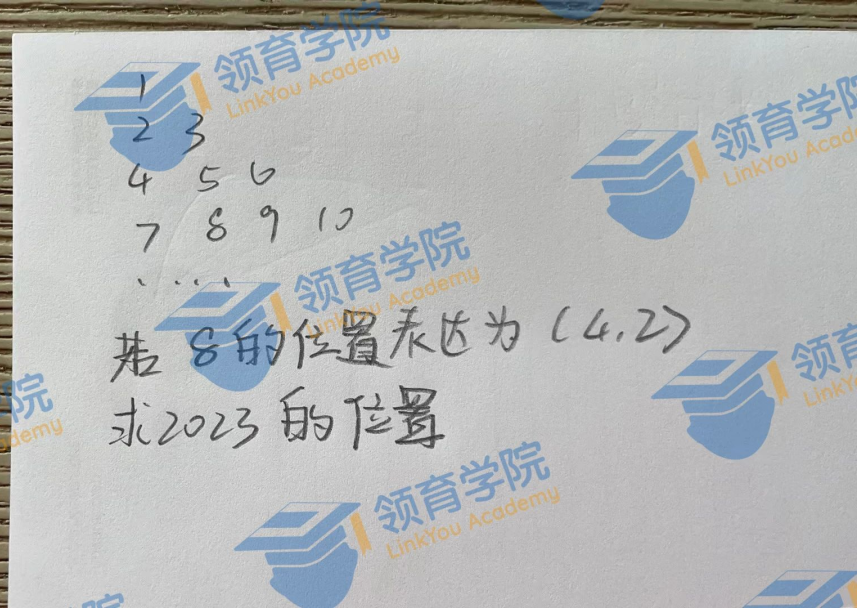 1
2 3
4 5 6
7 8 9 10
. . . .
若 8 的位置表达为 (4.2)
求2023 的位置
领育学院
LinkYou Academy
领育学院
LinkYou Acad
领育学院
LinkYou Academy
领育
LinkY
院
demy
领育学院
LinkYou Academy
院